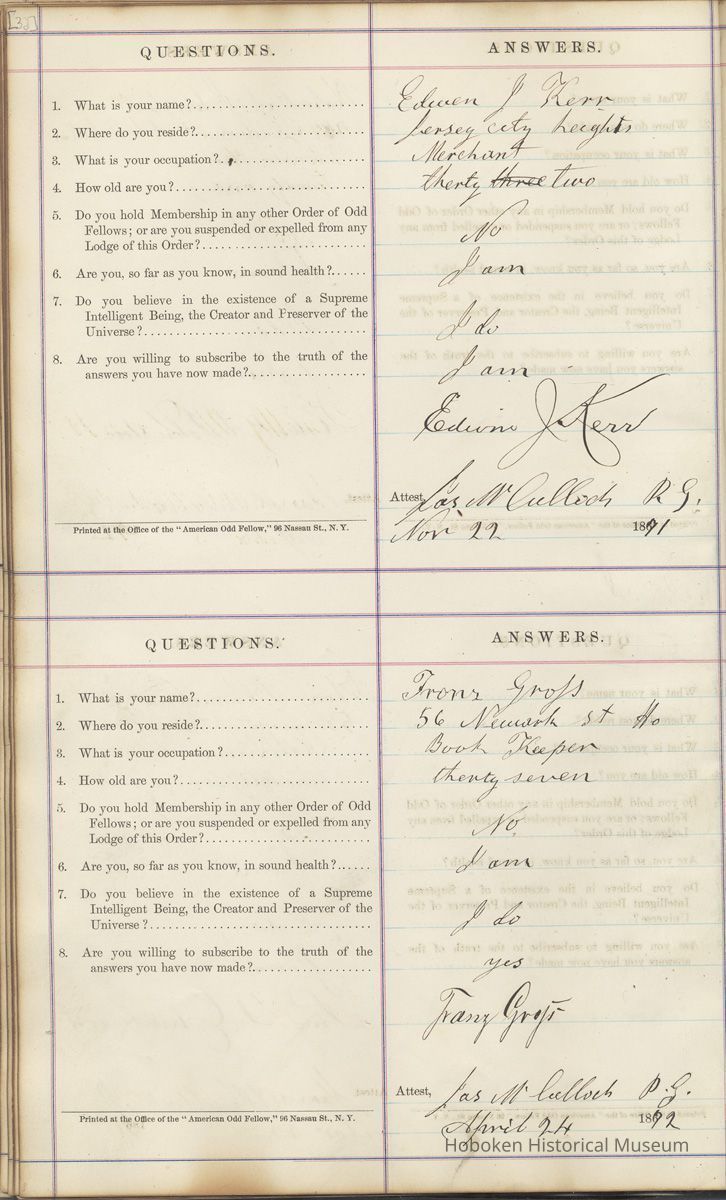 [32]
QUESTIONS.
ANSWERS.
1. What is your name?
Edwen J Kerr
2. Where do you reside?
Jersey city heights
3. What is your occupation?
Merchant
4. How old are you?
therty three two
5. Do you hold Membership in any other Order of Odd
Fellows; or are you suspended or expelled from any
Lodge of this Order?
No
6. Are you, so far as you know, in sound health?
I am
7. Do you believe in the existence of a Supreme
Intelligent Being, the Creator and Preserver of the
Universe?
I do
8. Are you willing to subscribe to the truth of the
answers you have now made?
I am
Edwin J Kerr
Attest, Jas McCulloch P. G.
Printed at the Office of the "American Odd Fellow," 96 Nassau St., N. Y.
Nov 22 1871
QUESTIONS.
ANSWERS.
1. What is your name?
Franz Gross
2. Where do you reside?
56 Newark st Ho
3. What is your occupation?
Book Keeper
4. How old are you?
therty seven
5. Do you hold Membership in any other Order of Odd
Fellows; or are you suspended or expelled from any
Lodge of this Order?
No
6. Are you, so far as you know, in sound health?
I am
7. Do you believe in the existence of a Supreme
Intelligent Being, the Creator and Preserver of the
Universe?
I do
8. Are you willing to subscribe to the truth of the
answers you have now made?
yes
Franz Gross
Attest, Jas McCulloch P. G.
Printed at the Office of the "American Odd Fellow," 96 Nassau St., N. Y.
April 24 1872
Hoboken Historical Museum